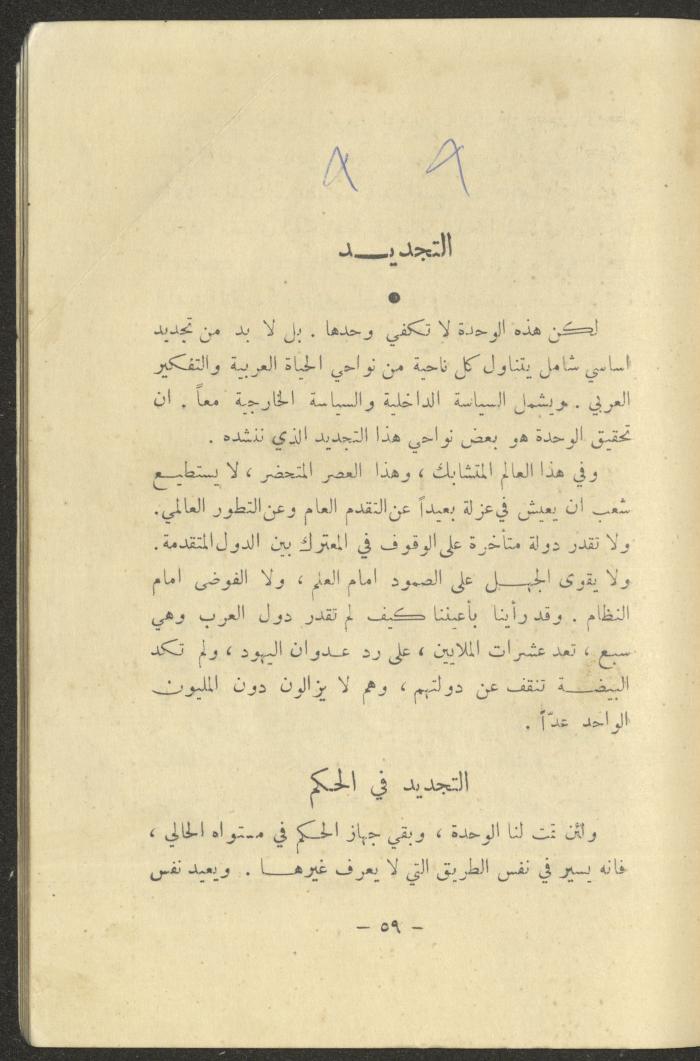 التجديـــد
لكن هذه الوحدة لا تكفي وحدها . بل لا بد من تجديد
اساسي شامل يتناول كل ناحية من نواحي الحياة العربية والتفكير
العربي . ويشمل السياسة الداخلية والسياسة الخارجية معاً . ان
تحقيق الوحدة هو بعض نواحي هذا التجديد الذي ننشده .
وفي هذا العالم المتشابك ، وهذا العصر المتحضر ، لا يستطيـع
شعب ان يعيش في عزلة بعيداً عن التقدم العام وعن التطور العالمي.
ولا تقدر دولة متأخرة على الوقوف في المعترك بين الدول المتقدمة.
ولا يقوى الجهـل على الصمود امام العلم ، ولا الفوضى امام
النظام . وقد رأينا بأعيننا كيف لم تقدر دول العرب وهي
سبع ، تعد عشرات الملايين ، على رد عـدوان اليهود ، ولم تكد
البيضـة تنقف عن دولتهم ، وهم لا يزالون دون المليون
الواحد عدّاً .
التجديد في الحكم
ولئن تمت لنا الوحدة ، وبقي جهاز الحكم في مستواه الحالي ،
فانه يسير في نفس الطريق التي لا يعرف غيرهـا . ويعيد نفس
– ٥٩ –